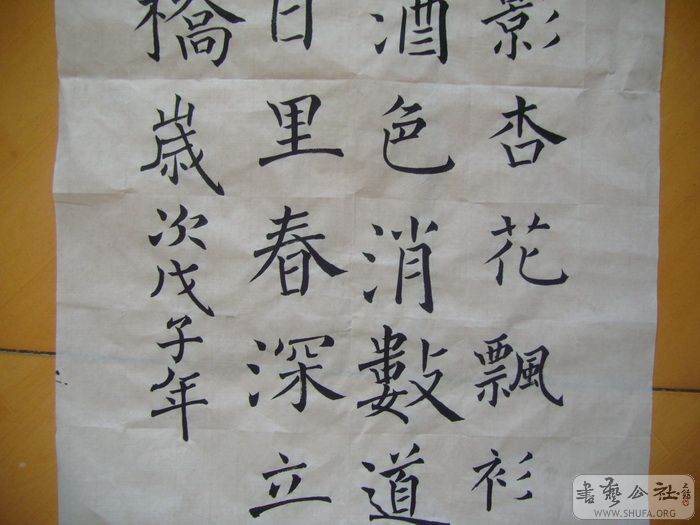 影杏花飄衫
酒色消數道
日里春深立
橋歲次戊子年
書藝公社
WWW.SHUFA.ORG